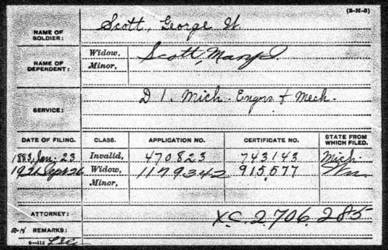 (3-H-8)
NAME OF SOLDIER: Scott, George W.
NAME OF DEPENDENT: Widow, Scott, Mary J.
Minor,
SERVICE: D 1. Mich. Engrs & Mech.
DATE OF FILING. CLASS. APPLICATION NO. CERTIFICATE NO. STATE FROM WHICH FILED.
1883, Jan. 23 Invalid, 470823 743143 Mich.
Widow, 1179342 915577
Minor,
ATTORNEY: XC. 2,706,285
REMARKS: